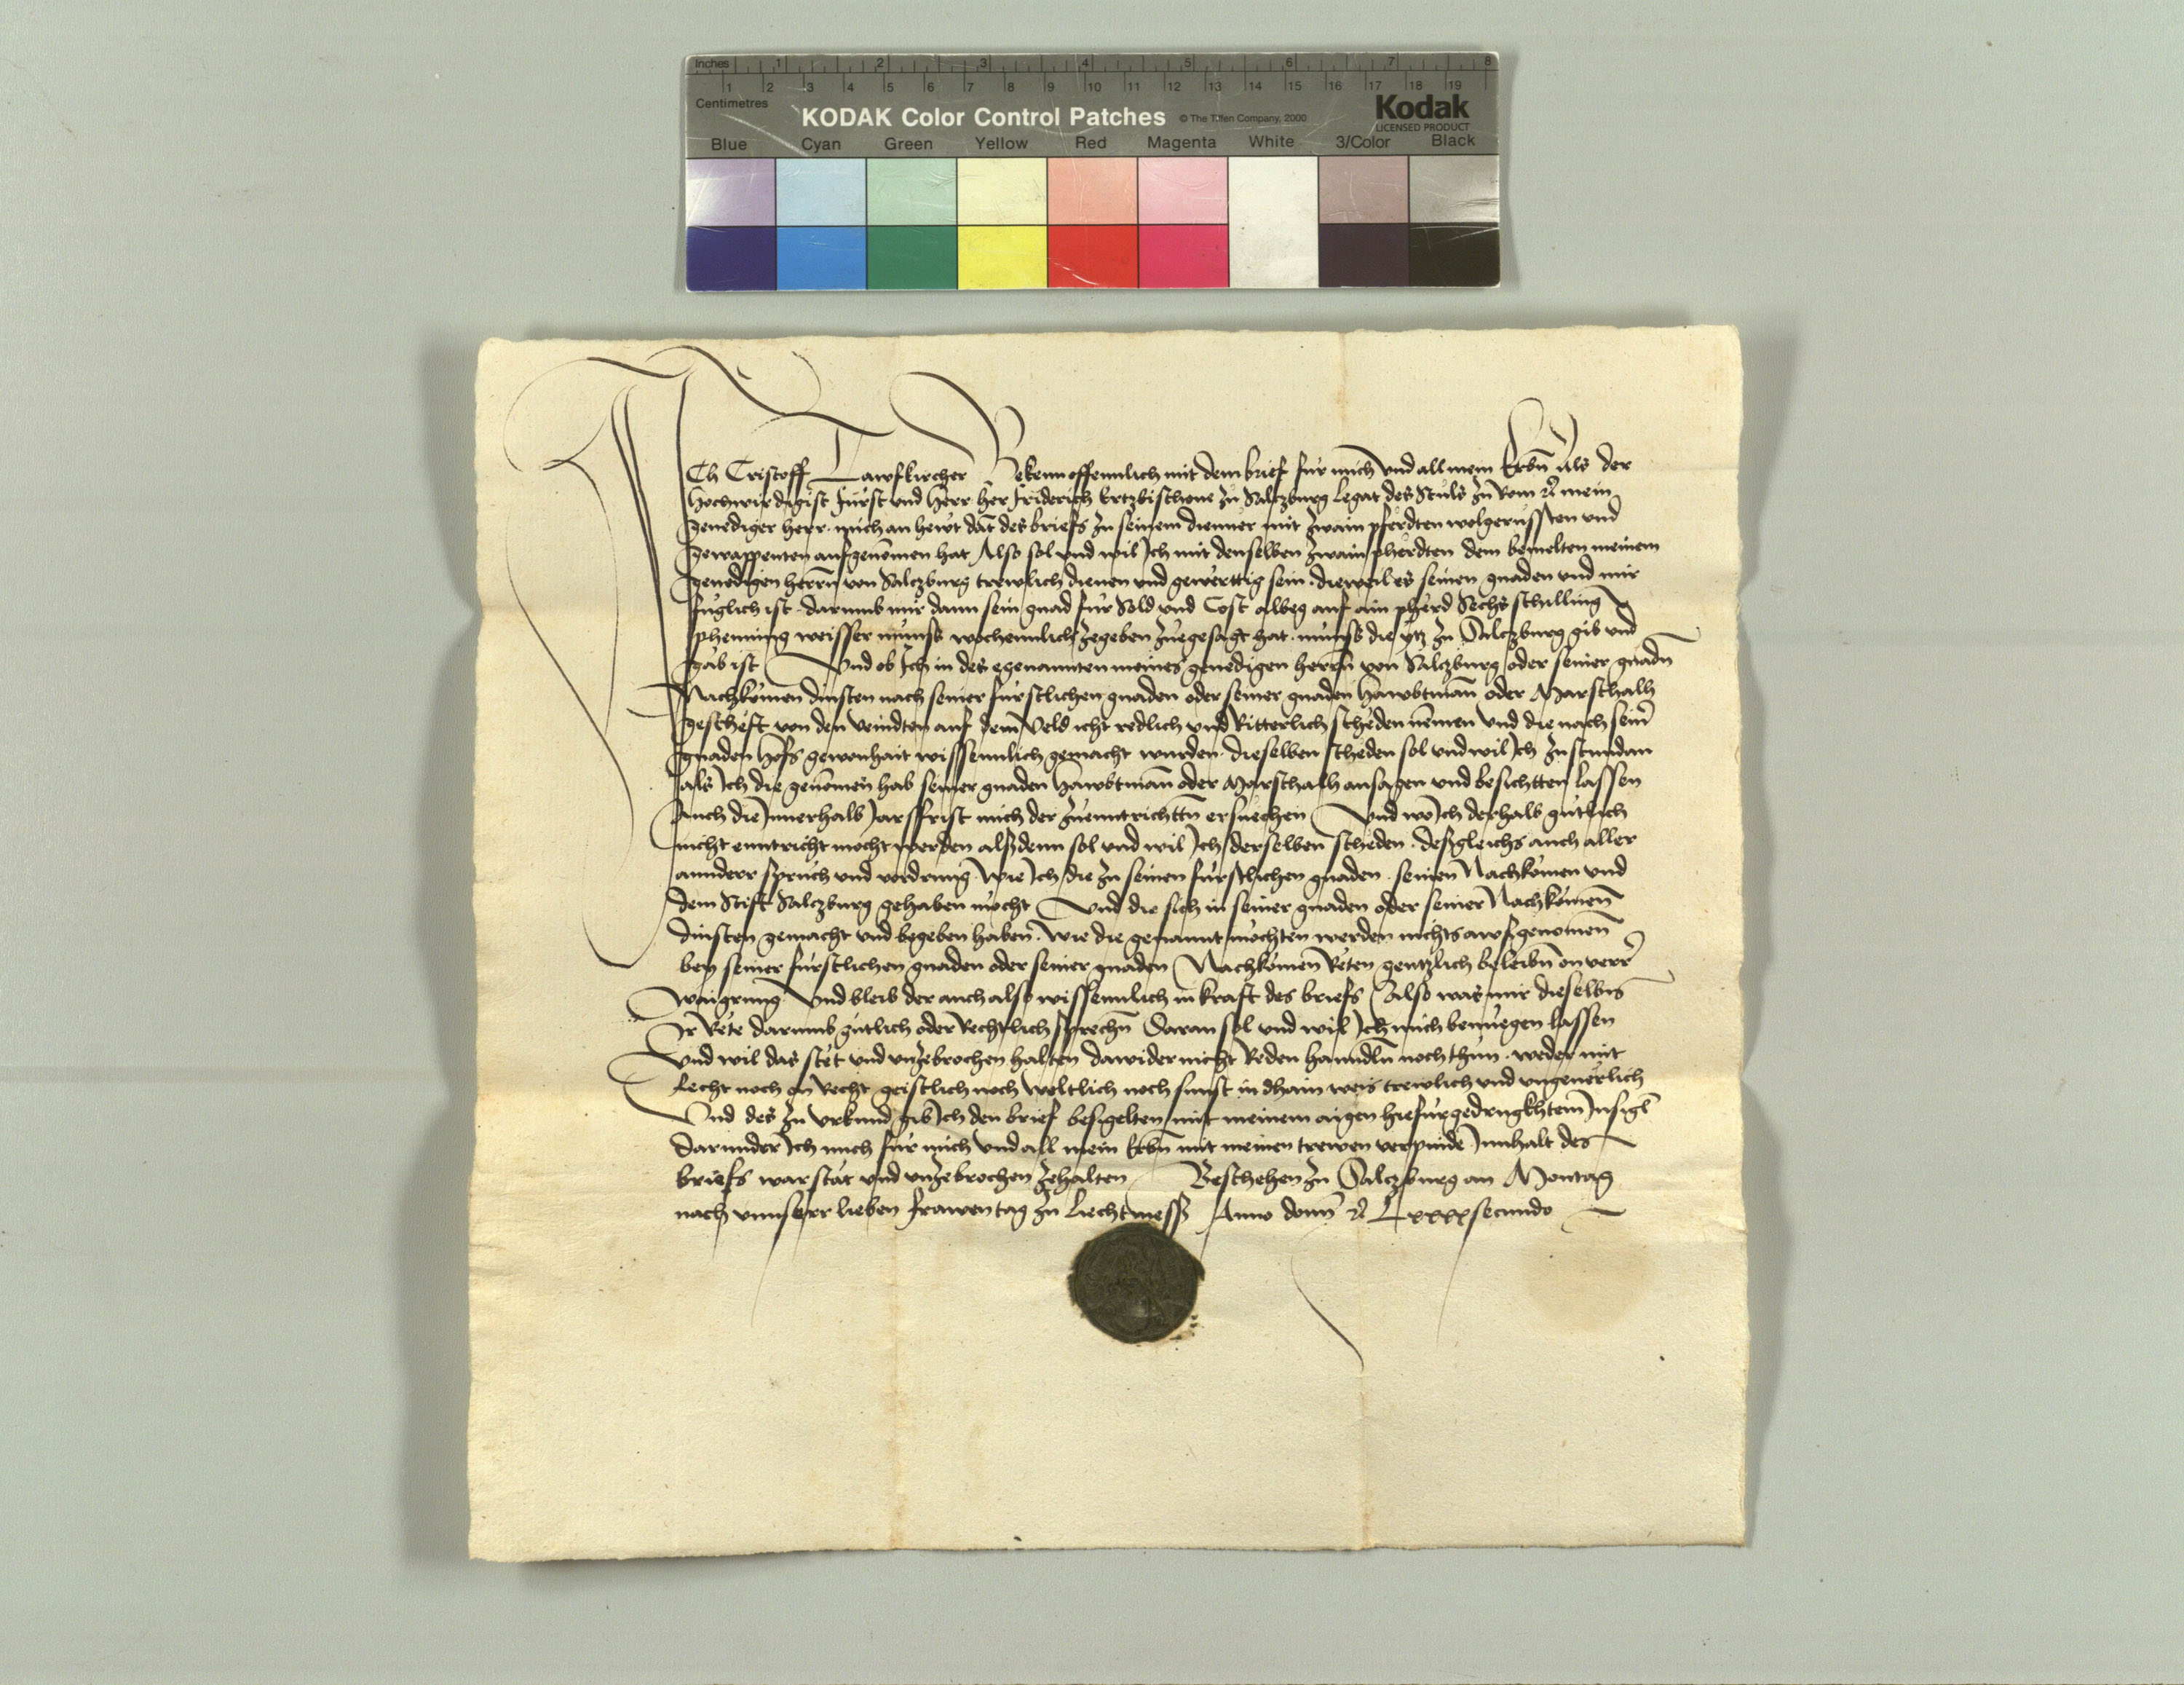 Inches 1 2 3 4 5 6 7 8
1 2 3 4 5 6 7 8 9 10 11 12 13 14 15 16 17 18 19
Centimetres
KODAK Color Control Patches © The Tiffen Company, 2000 Kodak
LICENSED PRODUCT
Blue Cyan Green Yellow Red Magenta White 3/Color Black
ICh Cristoff Lawfkircher Bekenn offennlich mit dem brief für mich vnd all mein Erbn̄ Als der
hochwirdigist Fürst vnd herr her Friderich Ertzbischoue zu Salczburg Legat des Stuls zu Rom ꝛc mein
genediger herr mich an hewt dat des briefs zu seinem dienner mit zwain pferdten wolgerüssten vnd
gewappenten aufgenomen hat Also sol vnd wil Ich mit denselben zwain pherdten dem bemelten meinem
genedigen herrn̄ von Salczburg trewlich dienen vnd gewerttig sein dieweil es seinen gnaden vnd mir
füglich ist darumb mir dann sein gnad für Sold vnd Cost alweg auf ain pherd Sechs schilling
phenning weisser münss wochennlich zegeben zuegesagt hat münss die ytz zu Salczburg gib vnd
gäb ist Vnd ob Ich in des egenannten meines genedigen herrn̄ von Salczburg oder seiner gnadn̄
Nachkomen dinsten nach seiner fürstlichen gnaden oder seiner gnaden Hawbtman̄ oder Marschalh
gescheft von den veindten auf dem Veld icht redlich vnd Ritterlich scheden nemen vnd die nach sein̄
gnaden Hofs gewonhait wissenlich gemacht wurden dieselben scheden sol vnd wil Ich zustundan
als Ich die genomen hab seiner gnaden Hawbtman̄ oder Marschalh ansagen vnd besichtten lassen
Auch die Innerhalb Jarsfrist mich der zuenntrichttn̄ ersuechen Vnd wo Ich derhalb gütlich
nicht enntricht mocht werden alßdenn sol vnd wil Ich derselben scheden deßgleichs auch aller
annderr sprüch vnd vordrung wie Ich die zu seinen fürstlichen gnaden seinen Nachkomen vnd
dem Stift Salczburg gehaben mocht Vnd die sich in seiner gnaden oder seiner Nachkomen̄
dinsten gemacht vnd begeben haben wie die genannt möchten werden nichts awsgenomen̄
bey seiner fürstlichen gnaden oder seiner gnaden Nachkomen Reten genntzlich beleibn̄ on verr̄
Waigrung Vnd bleib der auch also wissenlich in kraft des briefs Also was mir dieselbn
Ir Rete darumb gütlich oder Rechtlich sprechn̄ Daran sol vnd wil Ich mich benuegen lassen
Vnd wil das stet vnd vnzebrochen halten dawider nicht Reden hanndln̄ noch thun weder mit
Recht noch on Recht geistlich noch weltlich noch sunst in dhain weis trewlich vnd vngeuerlich
Vnd des zu vrkund gib Ich den brief besigelten mit meinem aigen hiefürgedrugkhtem Insigl
Darunder Ich mich für mich vnd all mein Erbn̄ mit meinen trewen verpinde Innhalt des
briefs war stät vnd vnzebrochen zehalten Beschehen zu Salczburg an Montag
nach vnnserr lieben frawen tag zu Liechtmess Anno domī ꝛc Lxxxx secundo